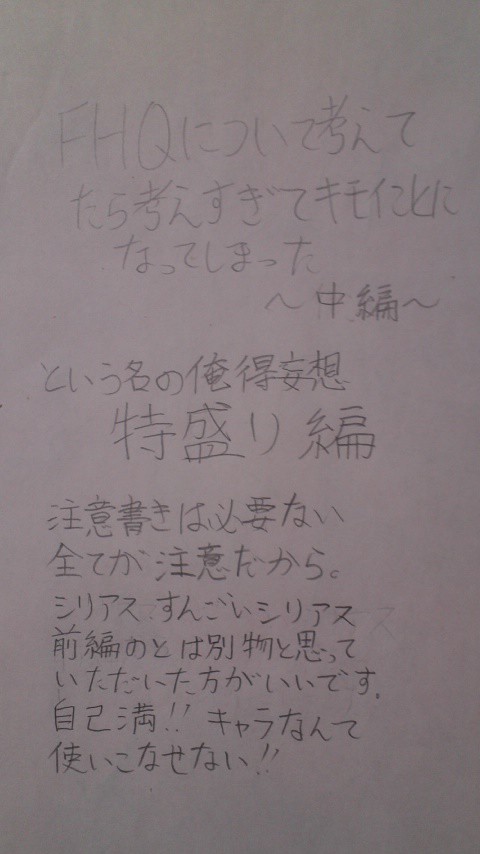 FHQについて考えて
たら考えすぎてキモイことに
なってしまった
～中編～
という名の俺得妄想
特盛り編
注意書きは必要ない
全てが注意だから。
シリアス すんごいシリアス
前編のとは別物と思って
いただいた方がいいです。
自己満!! キャラなんて
使いこなせない!!